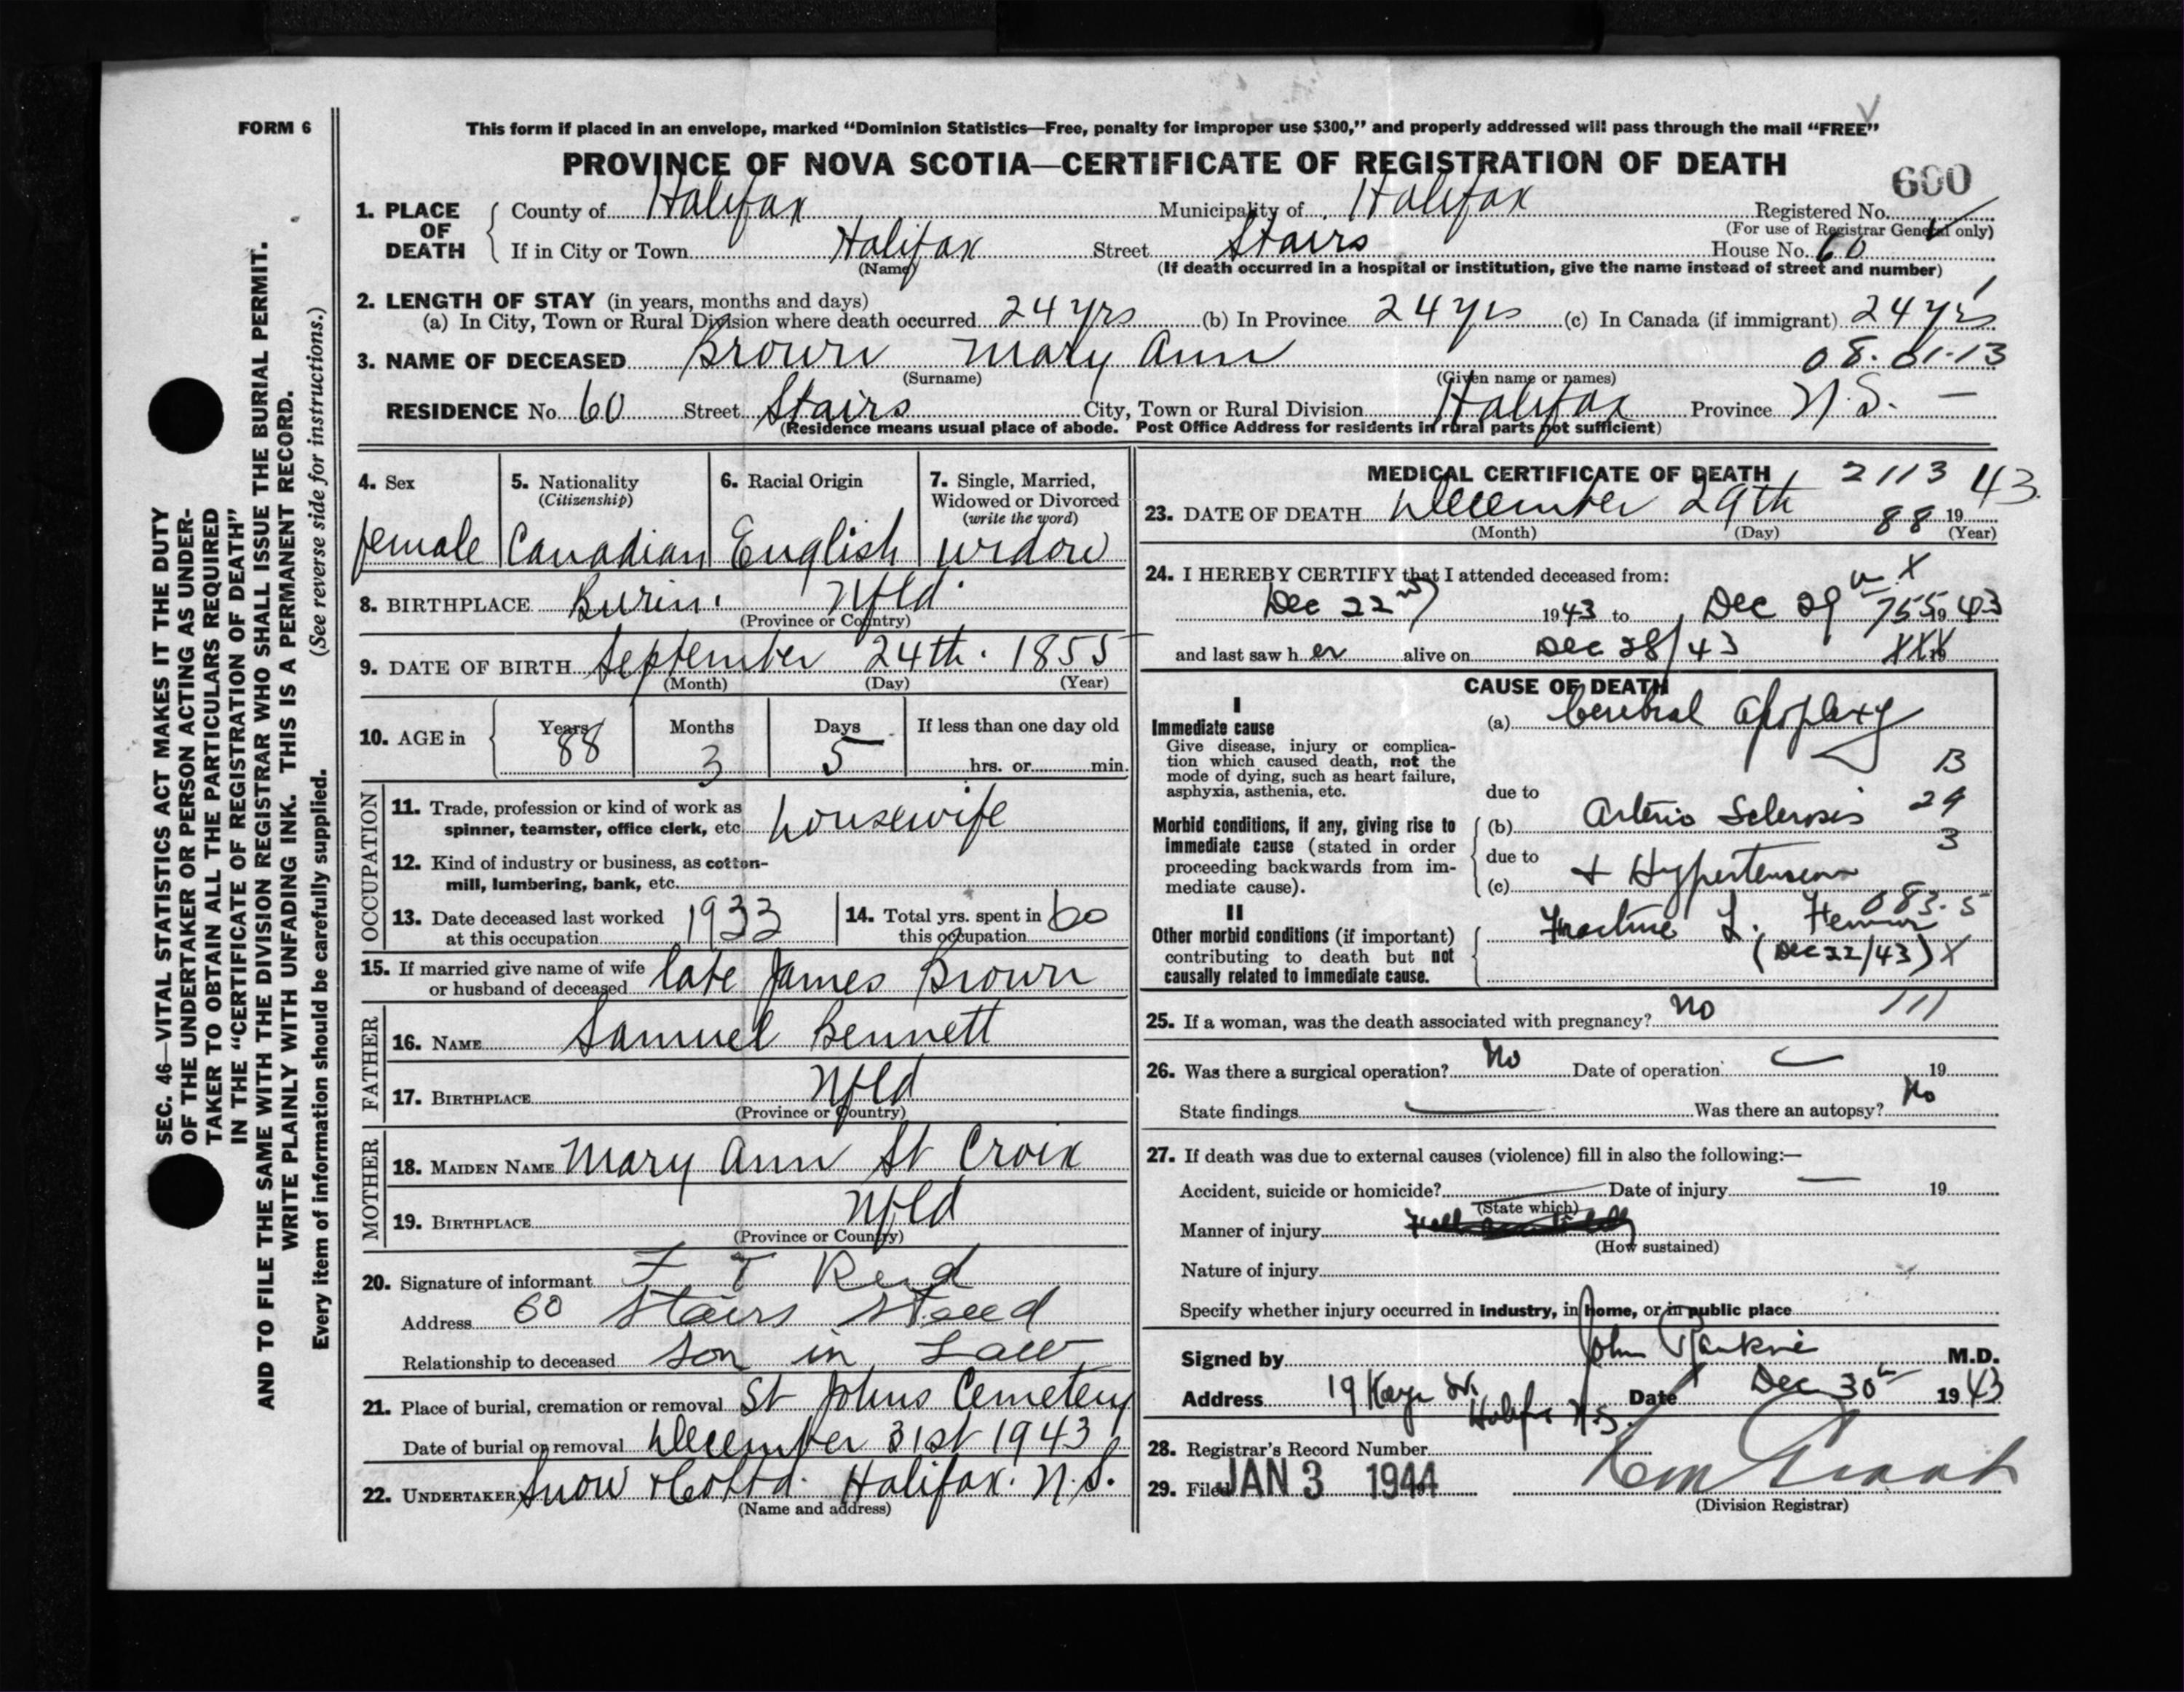 FORM 6
This form if placed in an envelope, marked “Dominion Statistics—Free, penalty for improper use $300,” and properly addressed will pass through the mail “FREE”
PROVINCE OF NOVA SCOTIA—CERTIFICATE OF REGISTRATION OF DEATH
600
1. PLACE OF DEATH { County of Halifax Municipality of Halifax Registered No.
(For use of Registrar General only)
If in City or Town Halifax Street Stairs House No. 60
(Name) (If death occurred in a hospital or institution, give the name instead of street and number)
2. LENGTH OF STAY (in years, months and days)
(a) In City, Town or Rural Division where death occurred 24 yrs (b) In Province 24 yrs (c) In Canada (if immigrant) 24 yrs
3. NAME OF DECEASED Brown Mary Ann 08-01-13
(Surname) (Given name or names)
RESIDENCE No. 60 Street Stairs City, Town or Rural Division Halifax Province N.S. —
(Residence means usual place of abode. Post Office Address for residents in rural parts not sufficient)
4. Sex
female
5. Nationality
(Citizenship)
Canadian
6. Racial Origin
English
7. Single, Married,
Widowed or Divorced
(write the word)
widow
8. BIRTHPLACE Burin. Nfld.
(Province or Country)
9. DATE OF BIRTH September 24th. 1855
(Month) (Day) (Year)
10. AGE in { Years Months Days If less than one day old
88 3 5 hrs. or min.
OCCUPATION
11. Trade, profession or kind of work as
spinner, teamster, office clerk, etc. housewife
12. Kind of industry or business, as cotton-
mill, lumbering, bank, etc.
13. Date deceased last worked
at this occupation 1933
14. Total yrs. spent in
this occupation 60
15. If married give name of wife
or husband of deceased late James Brown
FATHER
16. NAME Samuel Bennett
17. BIRTHPLACE Nfld
(Province or Country)
MOTHER
18. MAIDEN NAME Mary Ann St Croix
19. BIRTHPLACE Nfld
(Province or Country)
20. Signature of informant F T Reid
Address 60 Stairs Street
Relationship to deceased Son in Law
21. Place of burial, cremation or removal St Johns Cemetery
Date of burial or removal December 31st 1943
22. UNDERTAKER Snow & Co Ltd. Halifax. N.S.
(Name and address)
MEDICAL CERTIFICATE OF DEATH 2113
23. DATE OF DEATH December 29th 88 1943
(Month) (Day) (Year)
24. I HEREBY CERTIFY that I attended deceased from: X
Dec 22nd 1943 to Dec 29th 755 1943
and last saw her alive on Dec 28/43 XXX 19
CAUSE OF DEATH
I
Immediate cause
Give disease, injury or complica-
tion which caused death, not the
mode of dying, such as heart failure,
asphyxia, asthenia, etc.
(a) Cerebral apoplexy
B
due to
Morbid conditions, if any, giving rise to
immediate cause (stated in order
proceeding backwards from im-
mediate cause).
(b) Arterio Sclerosis 29
due to 3
(c) + Hypertension
083.5
II
Other morbid conditions (if important)
contributing to death but not
causally related to immediate cause.
Fracture L. Femur
(Dec 22/43) X
25. If a woman, was the death associated with pregnancy? no 111
26. Was there a surgical operation? No Date of operation — 19
State findings — Was there an autopsy? No
27. If death was due to external causes (violence) fill in also the following:—
Accident, suicide or homicide? — Date of injury — 19
(State which)
Manner of injury
(How sustained)
Nature of injury
Specify whether injury occurred in industry, in home, or in public place
Signed by John Rankine M.D.
Address 19 Kaye St. Halifax N.S. Date Dec 30th 1943
28. Registrar's Record Number
29. Filed JAN 3 1944
(Division Registrar)
SEC. 46—VITAL STATISTICS ACT MAKES IT THE DUTY
OF THE UNDERTAKER OR PERSON ACTING AS UNDER-
TAKER TO OBTAIN ALL THE PARTICULARS REQUIRED
IN THE “CERTIFICATE OF REGISTRATION OF DEATH”
AND TO FILE THE SAME WITH THE DIVISION REGISTRAR WHO SHALL ISSUE THE BURIAL PERMIT.
WRITE PLAINLY WITH UNFADING INK. THIS IS A PERMANENT RECORD.
Every item of information should be carefully supplied. (See reverse side for instructions.)